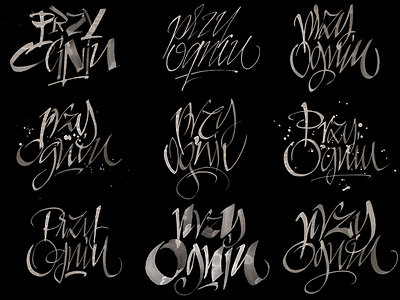 PRZY
przy
przy
OGNIU
Ogniu
Ogniu
przy
przy
Przy
Ogniu
Ogniu
Ogniu
Przy
przy
przy
Ogniu
Ogniu
Ogniu